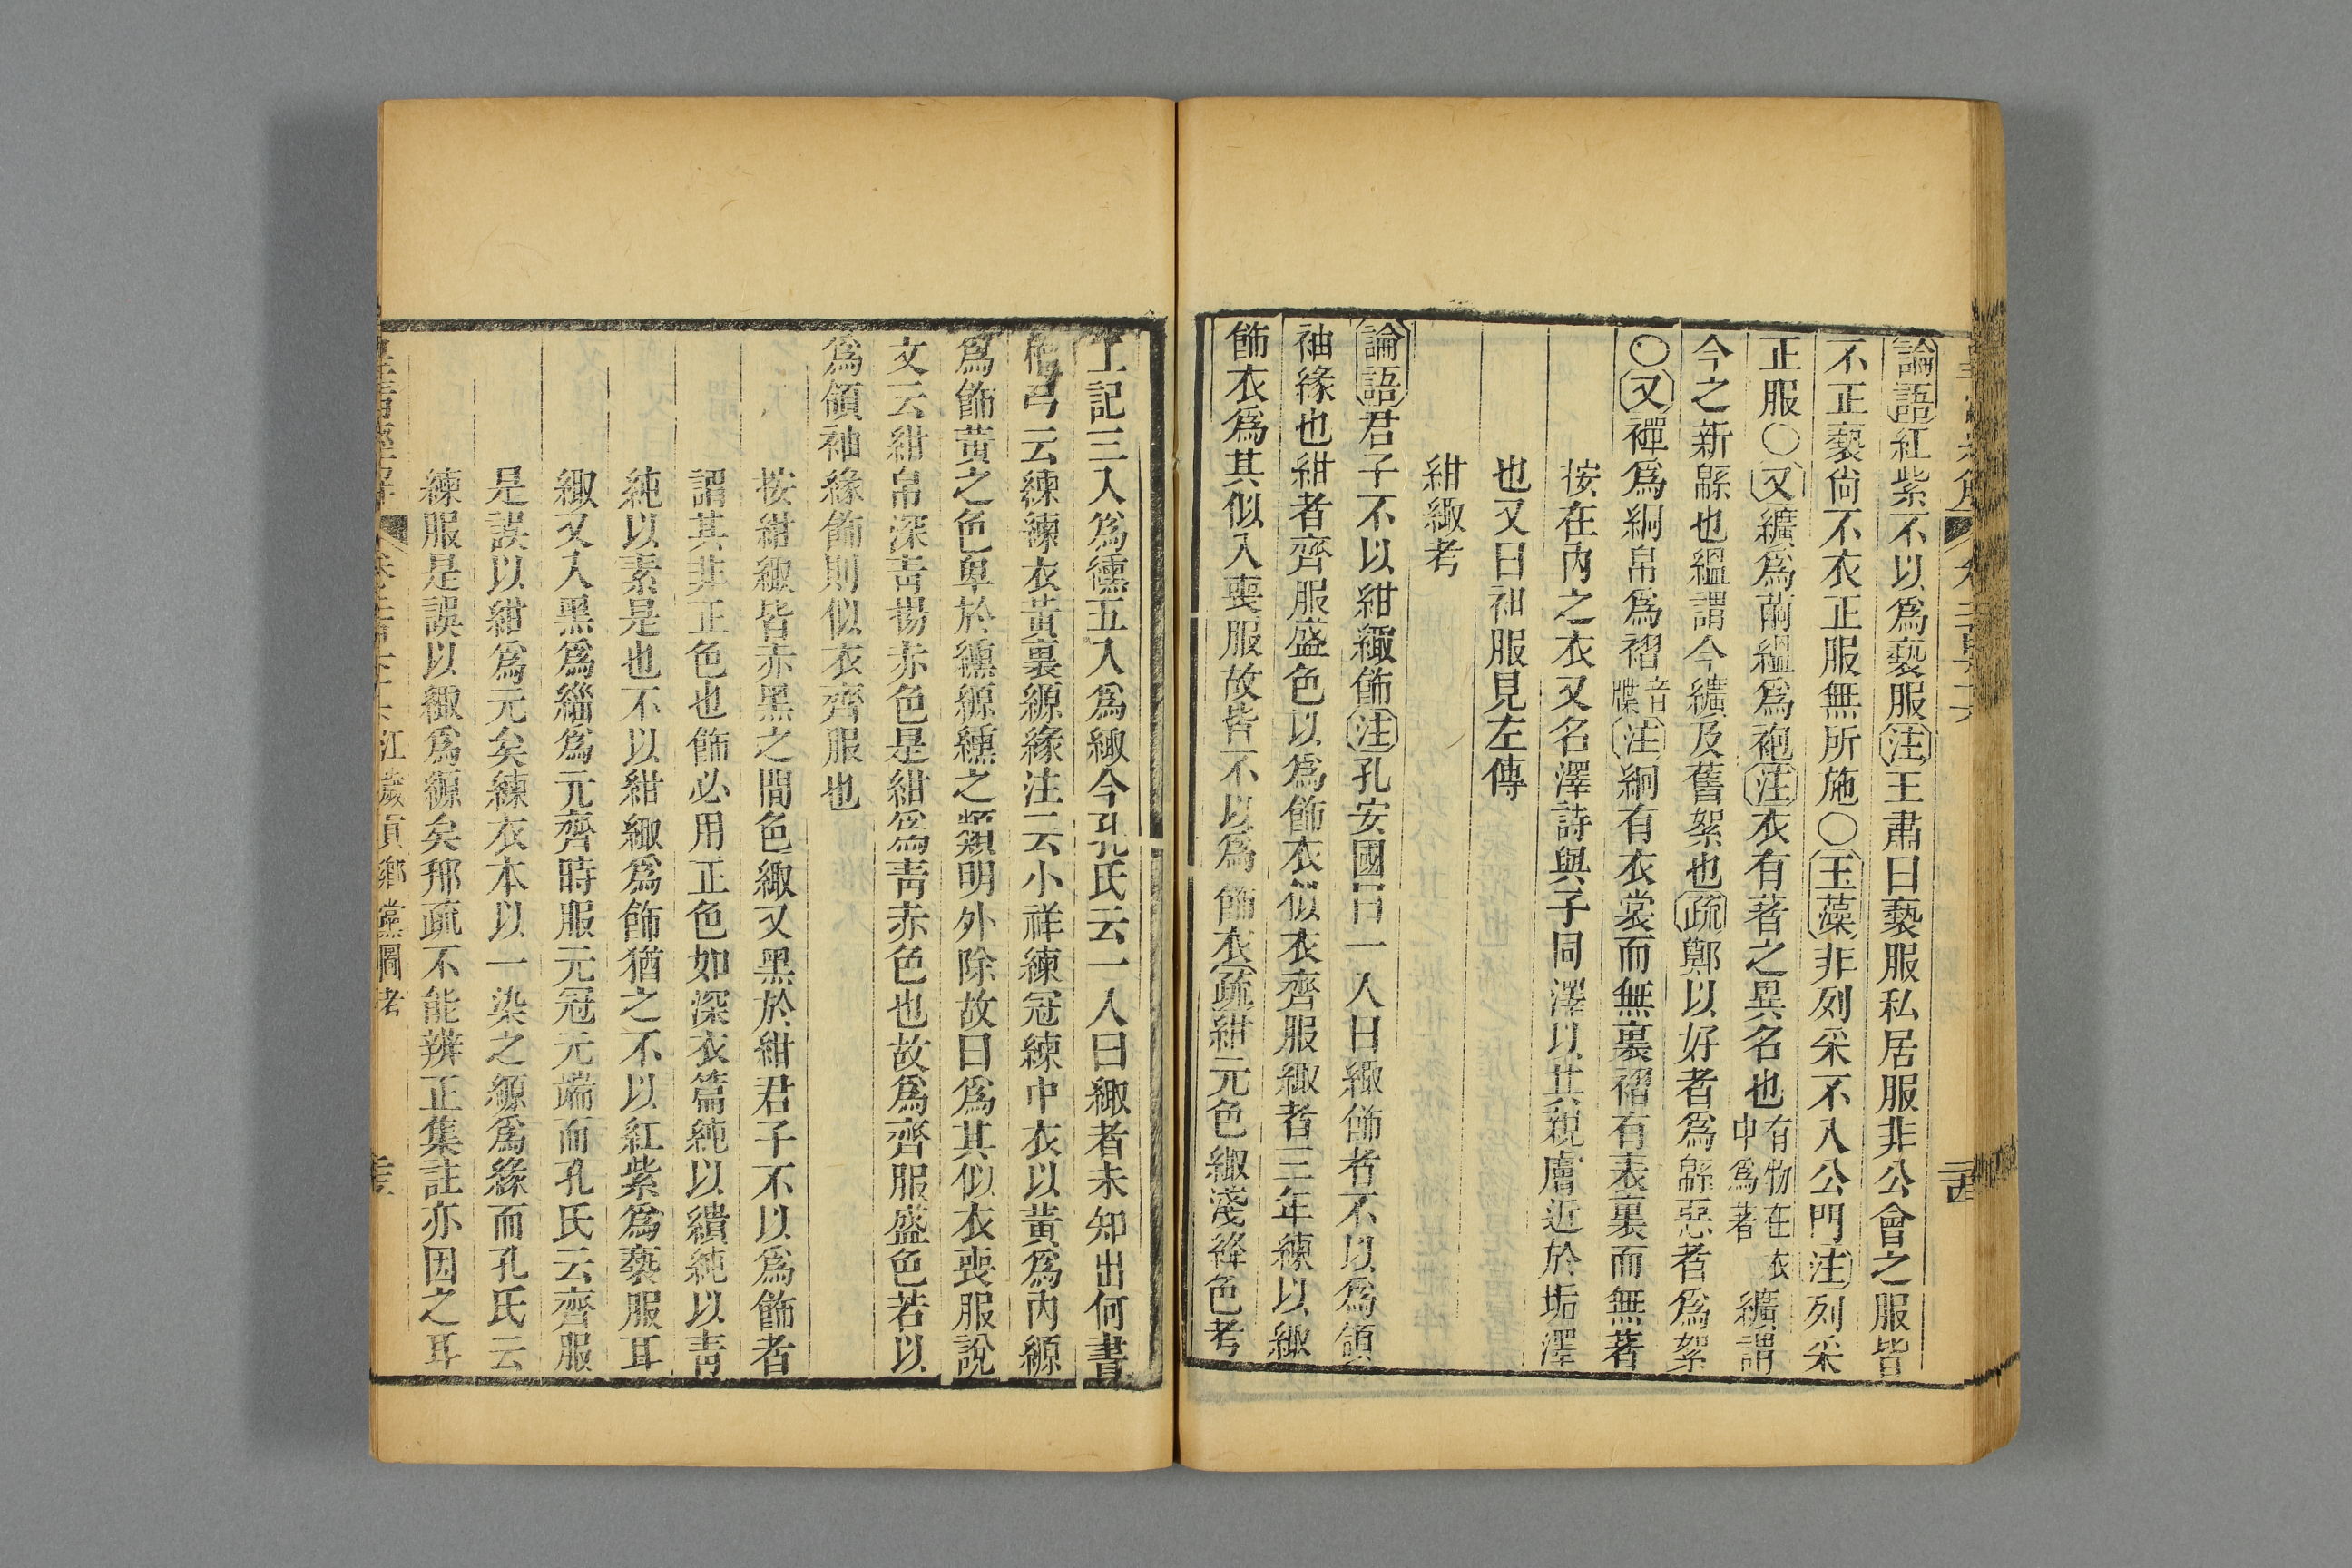 論語紅紫不以爲褻服注王肅曰褻服私居服非公會之服皆
不正褻尙不衣正服無所施○玉藻非列采不入公門注列采
正服○又纊爲繭縕爲袍注衣有著之異名也有物在衣中爲著纊謂
今之新緜也縕謂今纊及舊絮也疏鄭以好者爲緜惡者爲絮
○又襌爲絅帛爲褶音牒注絅有衣裳而無裏褶有表裏而無著
按在內之衣又名澤詩與子同澤以其親膚近於垢澤
也又曰衵服見左傳
紺緅考
論語君子不以紺緅飾注孔安國曰一入曰緅飾者不以爲領
袖緣也紺者齊服盛色以爲飾衣似衣齊服緅者三年練以緅
飾衣爲其似入喪服故皆不以爲飾衣疏紺元色緅淺絳色考
工記三入爲纁五入爲緅今孔氏云一入曰緅者未知出何書
檀弓云練練衣黃裏縓緣注云小祥練冠練中衣以黃爲內縓
爲飾黃之色卑於纁縓纁之類明外除故曰爲其似衣喪服說
文云紺帛深靑揚赤色是紺爲靑赤色也故爲齊服盛色若以
爲領袖緣飾則似衣齊服也
按紺緅皆赤黑之間色緅又黑於紺君子不以爲飾者
謂其非正色也飾必用正色如深衣篇純以繢純以靑
純以素是也不以紺緅爲飾猶之不以紅紫爲褻服耳
緅又入黑爲緇爲元齊時服元冠元端而孔氏云齊服
是誤以紺爲元矣練衣本以一染之縓爲緣而孔氏云
練服是誤以緅爲縓矣邢疏不能辨正集註亦因之耳
皇淸經解 江歲貢鄕黨圖考